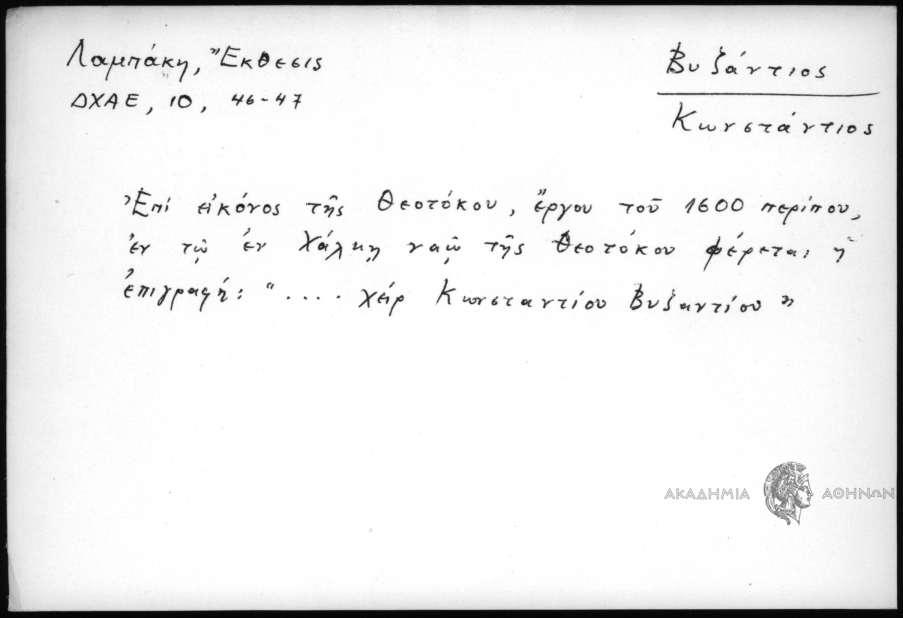 Λαμπάκη, Ἔκθεσις
ΔΧΑΕ, 10, 46-47
Βυζάντιος
Κωνστάντιος
Ἐπί εἰκόνος τῆς Θεοτόκου, ἔργου τοῦ 1600 περίπου,
ἐν τῷ ἐν Χάλκῃ ναῷ τῆς Θεοτόκου φέρεται ἡ
ἐπιγραφή: ".... χείρ Κωνσταντίου Βυζαντίου"
ΑΚΑΔΗΜΙΑ ΑΘΗΝΩΝ